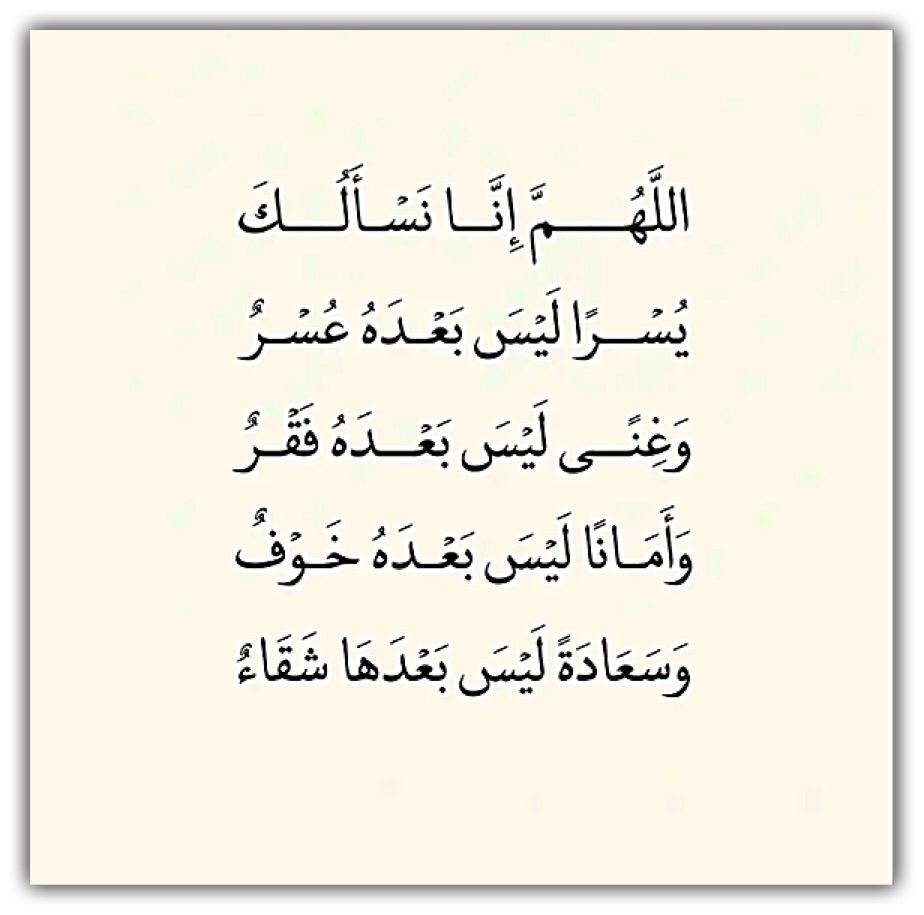 اللَّهُـــمَّ إِنَّــا نَسْـأَلُــكَ
يُسْــرًا لَيْسَ بَعْـدَهُ عُسْـرٌ
وَغِنًــى لَيْسَ بَعْــدَهُ فَقْـرٌ
وَأَمَـانًا لَيْسَ بَعْـدَهُ خَـوْفٌ
وَسَعَادَةً لَيْسَ بَعْدَهَا شَقَاءٌ